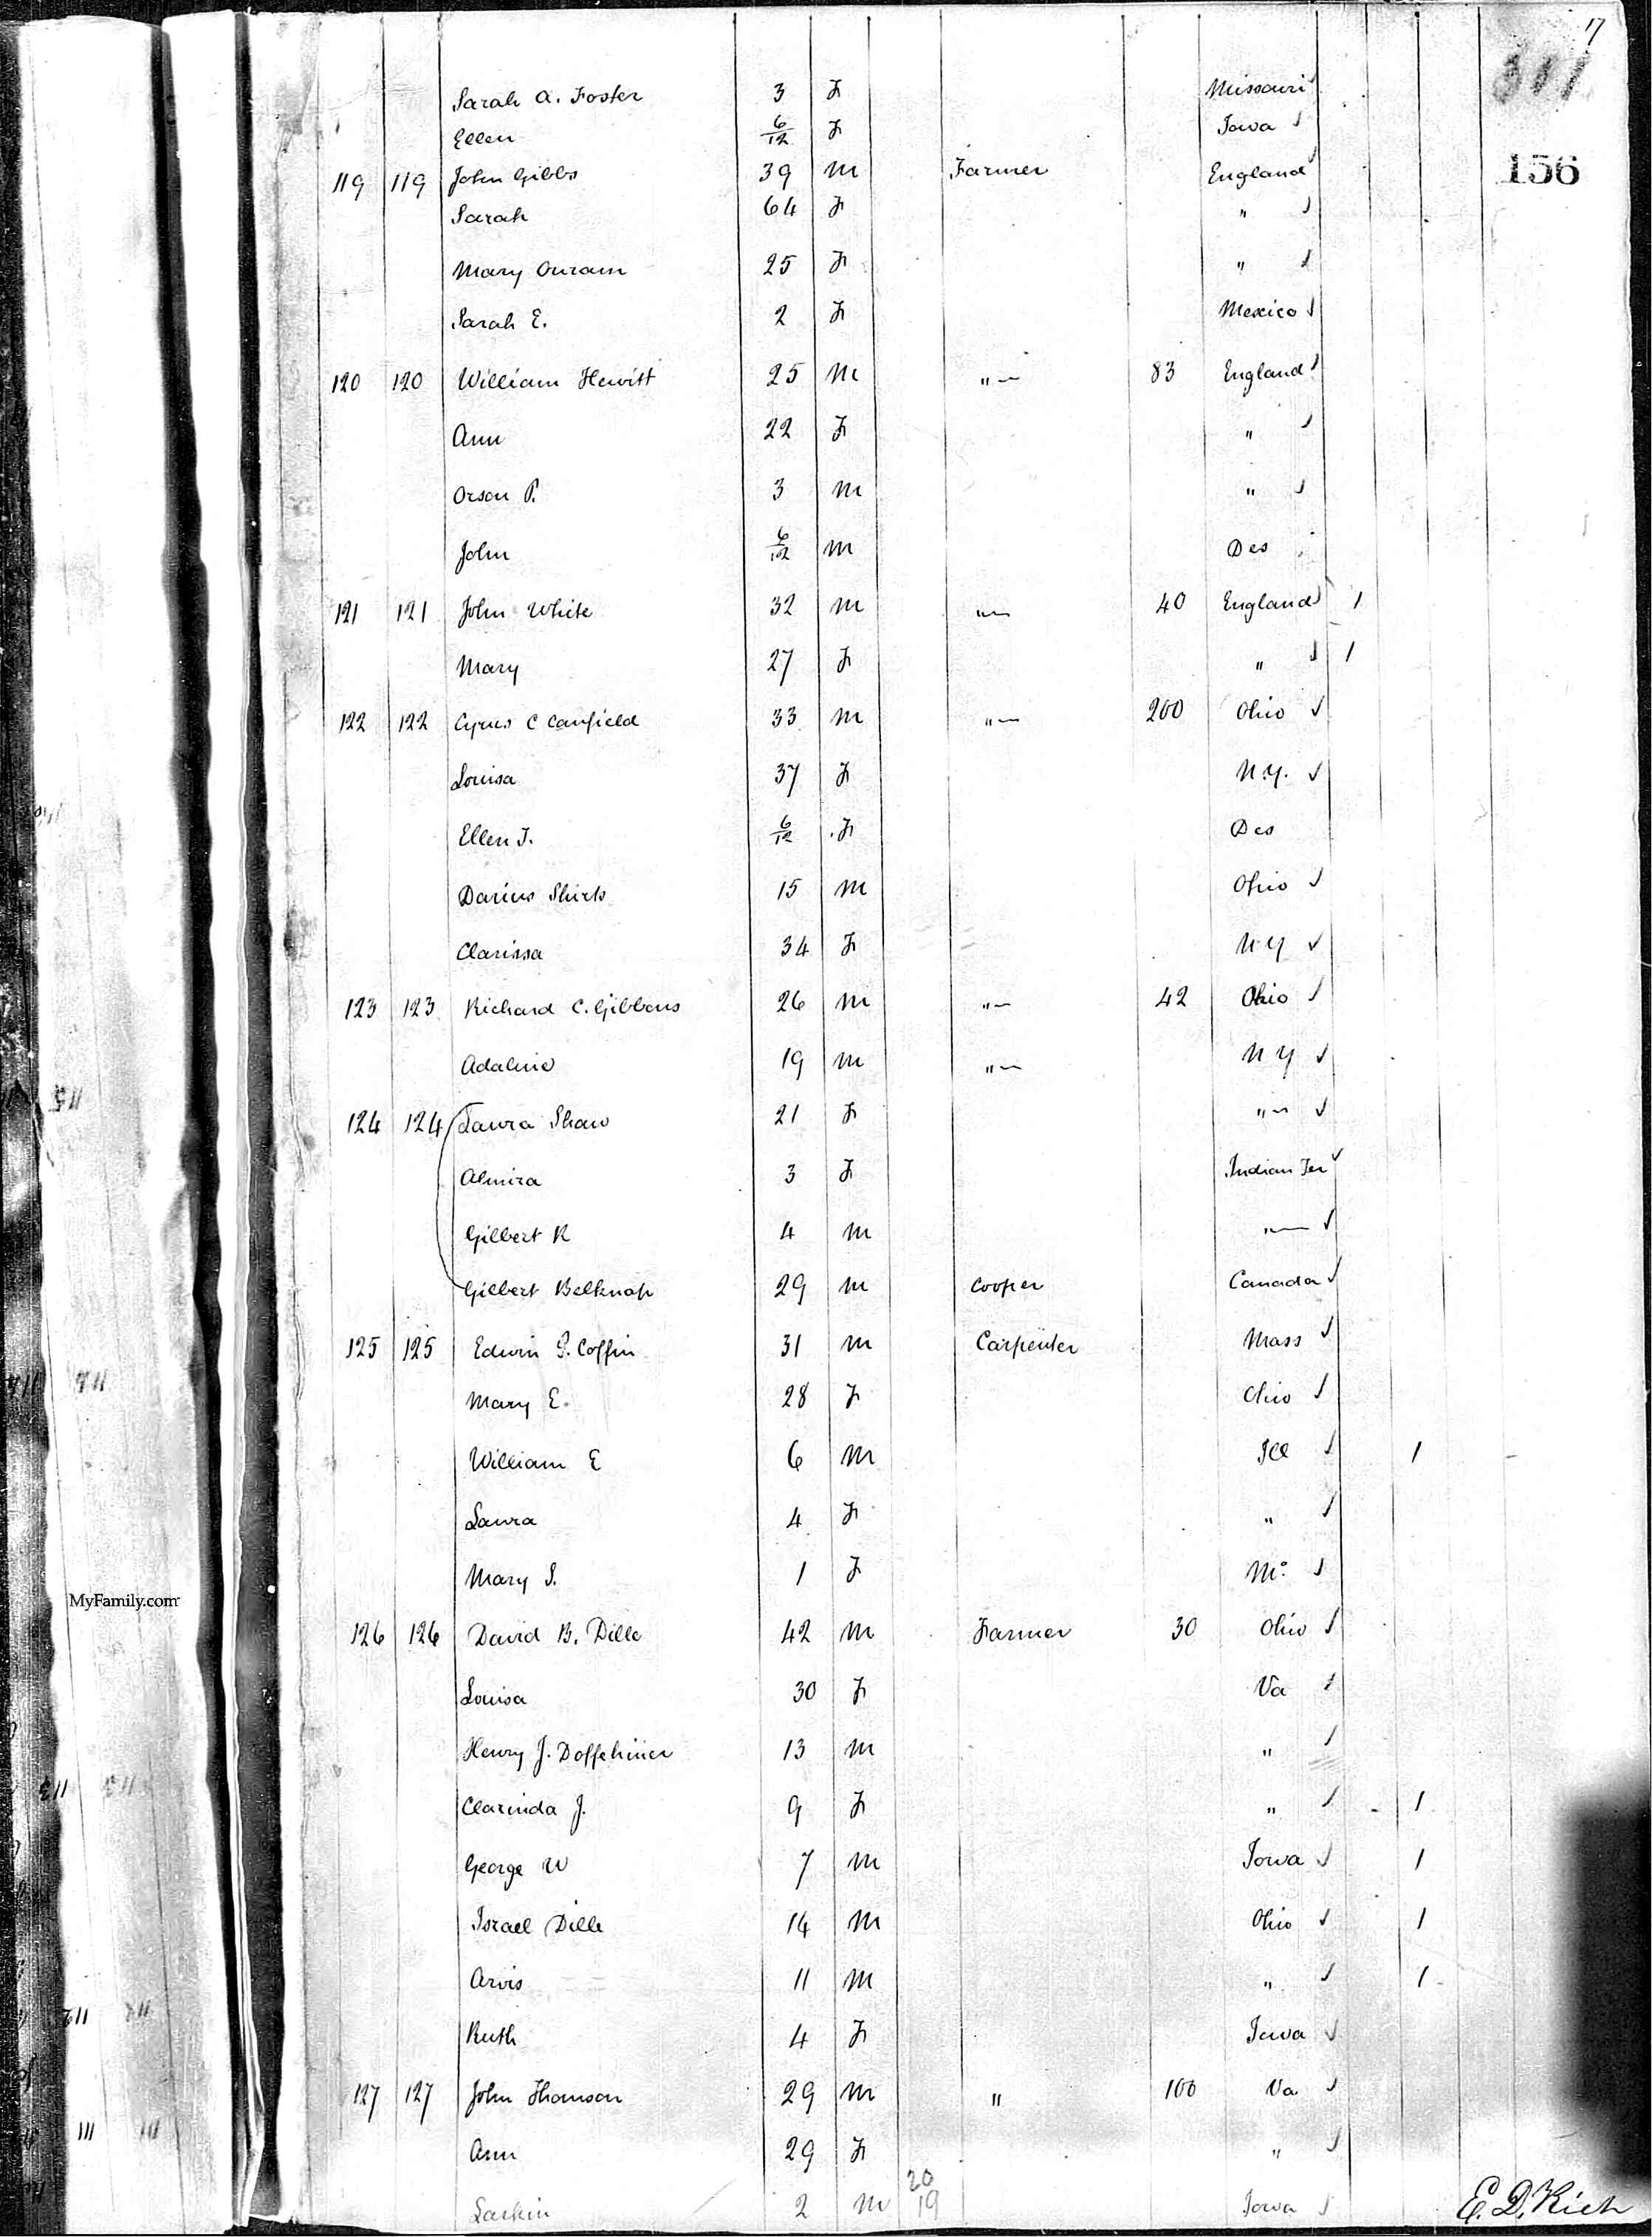 17
311
156
Sarah A. Foster 3 F Missouri
Ellen 6/12 F Iowa
119 119 John Gibbs 39 M Farmer England
Sarah 64 F "
Mary Ouram 25 F "
Sarah E. 2 F Mexico
120 120 William Hewitt 25 M " 83 England
Ann 22 F "
Orson P. 3 M "
John 6/12 M Des
121 121 John White 32 M " 40 England 1
Mary 27 F " 1
122 122 Cyrus C Canfield 33 M " 200 Ohio
Louisa 37 F N.Y.
Ellen J. 6/12 F Des
Darius Shirts 15 M Ohio
Clarissa 34 F N Y
123 123 Richard C. Gibbons 26 M " 42 Ohio
Adaline 19 M " N Y
124 124 Laura Shaw 21 F "
Almira 3 F Indian Ter
Gilbert R 4 M "
Gilbert Belknap 29 M Cooper Canada
125 125 Edwin S. Coffin 31 M Carpenter Mass
Mary E. 28 F Ohio
William E 6 M Ill 1
Laura 4 F "
Mary S. 1 F Mo
126 126 David B. Dille 42 M Farmer 30 Ohio
Louisa 30 F Va
Henry J. 13 M "
Clarinda J. 9 F " 1
George W 7 M Iowa 1
Israel Dille 14 M Ohio 1
Arvis 11 M " 1
Ruth 4 F Iowa
127 127 John Thomson 29 M " 100 Va
Ann 29 F "
Larkin 2 M 20 19 Iowa
E. D. Rich
MyFamily.com